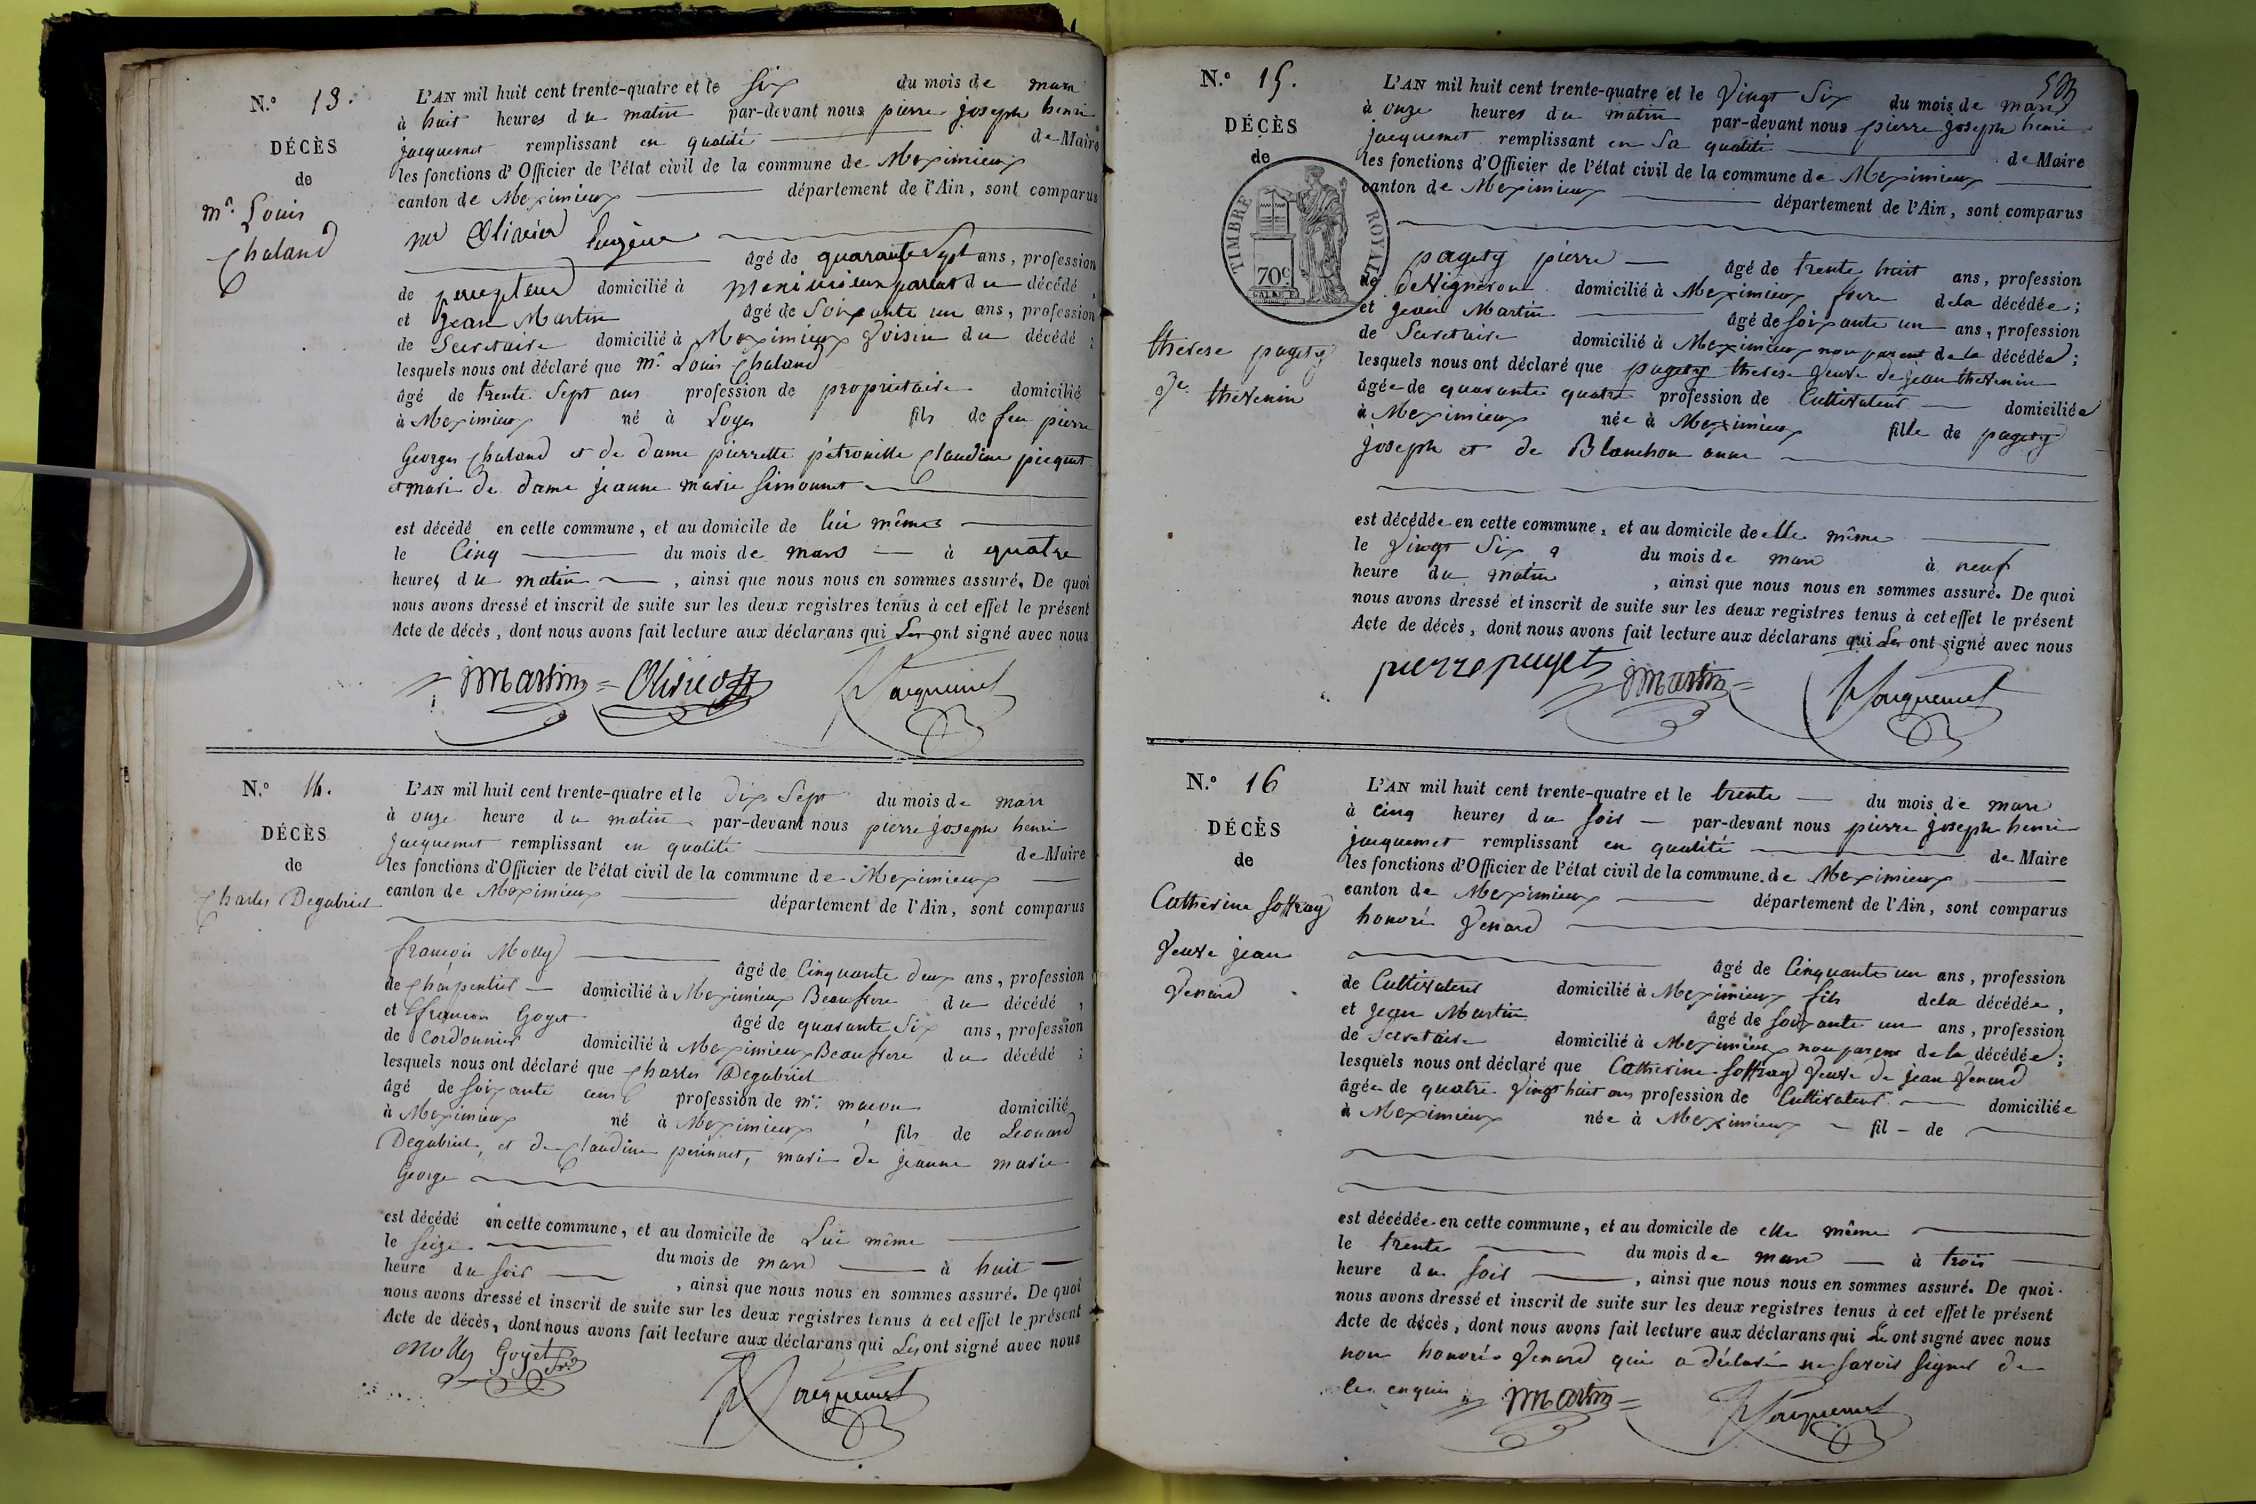 N.º 13.
DÉCÈS
de
mr. Louis
Chaland
L'AN mil huit cent trente-quatre et le Six du mois de mars
à huit heures du matin par-devant nous pierre joseph henri
jacquemet remplissant en qualité de Maire
les fonctions d'Officier de l'état civil de la commune de Meximieux
canton de Meximieux département de l'Ain, sont comparus
mr Olivier Eugène
âgé de quarante Sept ans, profession
de percepteur domicilié à Meximieux parent du décédé,
et Jean Martin âgé de Soixante un ans, profession
de Secretaire domicilié à Meximieux Voisin du décédé;
lesquels nous ont déclaré que mr. Louis Chaland
âgé de trente Sept ans profession de propriétaire domicilié
à Meximieux né à Loyes fils de feu pierre
Georges Chaland et de dame pierrette pétronille Claudine picquet
et mari de dame jeanne marie Simonnet
est décédé en cette commune, et au domicile de lui même
le Cinq du mois de mars à quatre
heures du matin, ainsi que nous nous en sommes assuré. De quoi
nous avons dressé et inscrit de suite sur les deux registres tenus à cet effet le présent
Acte de décès, dont nous avons fait lecture aux déclarans qui Les ont signé avec nous
jMartin Olivier Jacquemet
N.º 14.
DÉCÈS
de
Charles Degabriel
L'AN mil huit cent trente-quatre et le dix Sept du mois de mars
à onze heure du matin par-devant nous pierre joseph henri
jacquemet remplissant en qualité de Maire
les fonctions d'Officier de l'état civil de la commune de Meximieux
canton de Meximieux département de l'Ain, sont comparus
françois Molly
âgé de Cinquante deux ans, profession
de charpentier domicilié à Meximieux Beaufrere du décédé,
et françois Goyet âgé de quarante Six ans, profession
de Cordonnier domicilié à Meximieux Beaufrere du décédé;
lesquels nous ont déclaré que Charles Degabriel
âgé de soixante ans profession de mr. macon domicilié
à Meximieux né à Meximieux fils de Leonard
Degabriel, et de Claudine perinnet, mari de jeanne marie
George
est décédé en cette commune, et au domicile de Lui même
le seize du mois de mars à huit
heure du soir, ainsi que nous nous en sommes assuré. De quoi
nous avons dressé et inscrit de suite sur les deux registres tenus à cet effet le présent
Acte de décès, dont nous avons fait lecture aux déclarans qui Les ont signé avec nous
Molly Goyet Jacquemet
N.º 15.
DÉCÈS
de
TIMBRE ROYAL
70c
therese pagety
Ve. thevenin
L'AN mil huit cent trente-quatre et le Vingt Six du mois de mars
à onze heures du matin par-devant nous pierre joseph henri
jacquemet remplissant en Sa qualité de Maire
les fonctions d'Officier de l'état civil de la commune de Meximieux
canton de Meximieux département de l'Ain, sont comparus
pagety pierre âgé de trente huit ans, profession
de de Vigneron domicilié à Meximieux frere dela décédée;
et jean Martin âgé de soixante un ans, profession
de Secretaire domicilié à Meximieux non parent dela décédée;
lesquels nous ont déclaré que pagety therese Veuve de jean thevenin
âgée de quarante quatre profession de Cultivateur domiciliée
à Meximieux née à Meximieux fille de pagety
joseph et de Blanchon anne
est décédée en cette commune, et au domicile de elle même
le Vingt Six du mois de mars à neuf
heure du matin, ainsi que nous nous en sommes assuré. De quoi
nous avons dressé et inscrit de suite sur les deux registres tenus à cet effet le présent
Acte de décès, dont nous avons fait lecture aux déclarans qui Les ont signé avec nous
pierre puget jMartin Jacquemet
N.º 16
DÉCÈS
de
Catherine Soffray
Veuve jean
Venard
L'AN mil huit cent trente-quatre et le trente du mois de mars
à Cinq heures du soir par-devant nous pierre joseph henri
jacquemet remplissant en qualité de Maire
les fonctions d'Officier de l'état civil de la commune de Meximieux
canton de Meximieux département de l'Ain, sont comparus
honoré Venard
âgé de Cinquante un ans, profession
de Cultivateur domicilié à Meximieux fils dela décédée,
et Jean Martin âgé de soixante un ans, profession
de Secretaire domicilié à Meximieux non parent dela décédée;
lesquels nous ont déclaré que Catherine Soffray Veuve de jean Venard
âgée de quatre Vingt huit ans profession de Cultivateur domiciliée
à Meximieux née à Meximieux fil de
est décédée en cette commune, et au domicile de elle même
le trente du mois de mars à trois
heure du soir, ainsi que nous nous en sommes assuré. De quoi
nous avons dressé et inscrit de suite sur les deux registres tenus à cet effet le présent
Acte de décès, dont nous avons fait lecture aux déclarans qui Les ont signé avec nous
non honoré Venard qui a déclaré ne savoir signer de
ce enquis jMartin Jacquemet